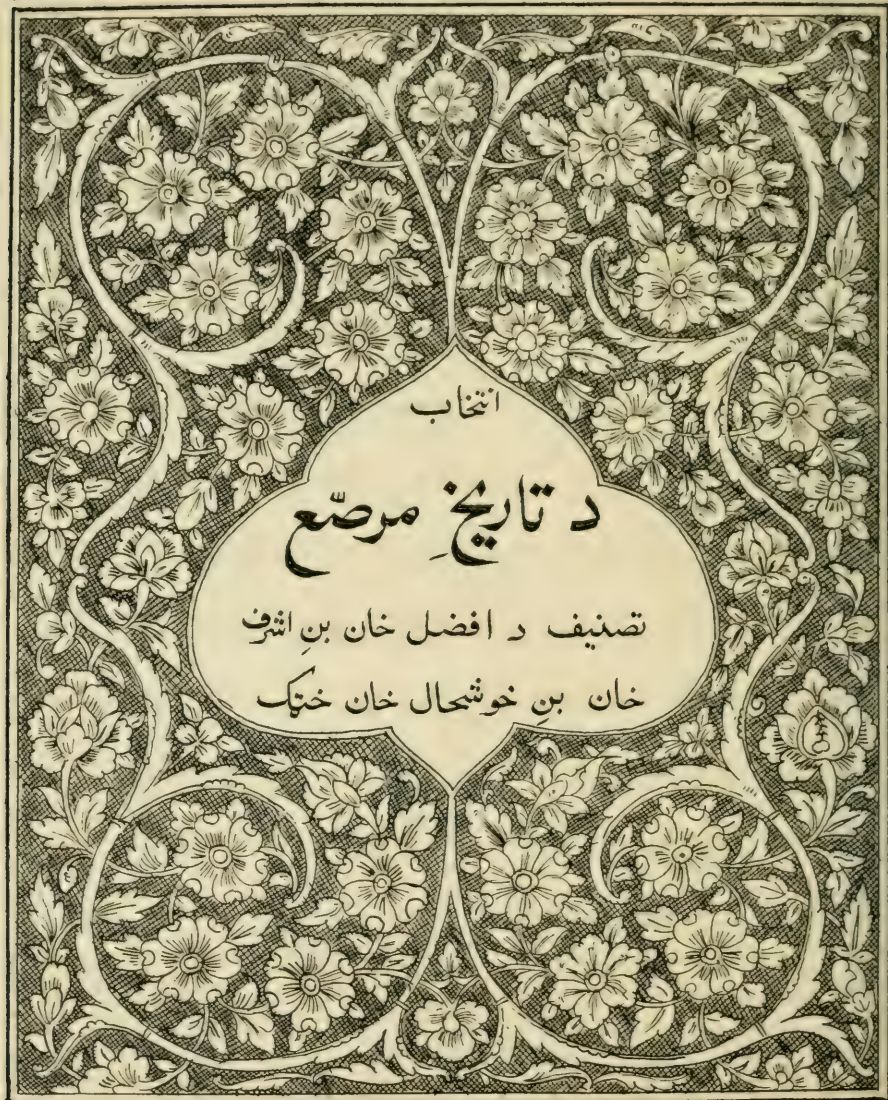 انتخاب
د تاریخِ مرصّع
تصنیف د افضل خان بنِ اشرف
خان بنِ خوشحال خان خټک